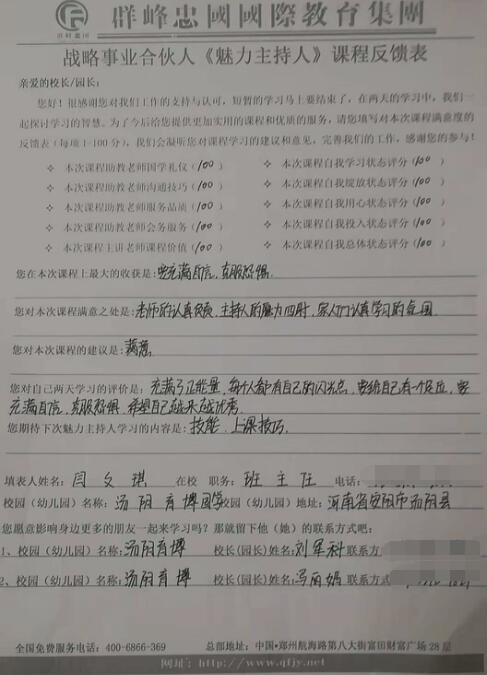 群峰忠國國際教育集團
战略事业合伙人《魅力主持人》课程反馈表
亲爱的校长/园长:
您好!很感谢您对我们工作的支持与认可,短暂的学习马上要结束了,在两天的学习中,我们一
起探讨学习的智慧。为了今后给您提供更加实用的课程和优质的服务,请您填写对本次课程满意度的
反馈表(每项1-100分),我们会凝听您对课程学习的建议和意见,完善我们的工作,感谢您的参与!
本次课程助教老师国学礼仪(100) 本次课程自我学习状态评分(100)
本次课程助教老师沟通技巧(100) 本次课程自我绽放状态评分(100)
本次课程助教老师服务品质(100) 本次课程自我用心状态评分(100)
本次课程助教老师会务服务(100) 本次课程自我投入状态评分(100)
本次课程主讲老师课程价值(100) 本次课程自我总体状态评分(100)
您在本次课程上最大的收获是:要充满自信,克服恐惧
您对本次课程满意之处是:老师的认真负责,主持人的魅力四射,家人们认真学习的氛围
您对本次课程的建议是:满意
您对自己两天学习的评价是:充满了正能量,每个人都有自己的闪光点,要给自己有个定位,要
充满自信,克服恐惧,希望自己越来越优秀
您期待下次魅力主持人学习的内容是:技能、上课技巧
填表人姓名:闫文琪 在校 职务:班主任 电话:
校园(幼儿园)名称:汤阴育博国学 校园(幼儿园)地址:河南省安阳市汤阴县
您愿意影响身边更多的朋友一起来学习吗?那就留下他(她)的联系方式吧:
1、校园(幼儿园)名称:汤阴育博 校长(园长)姓名:刘军科 联系方
2、校园(幼儿园)名称:汤阴育博 校长(园长)姓名:冯丽娟 联系方式
全国免费服务电话:400-6866-369 总部地址:中国·郑州航海路第八大街富田财富广场28层
网址:http://www.qfjy.net